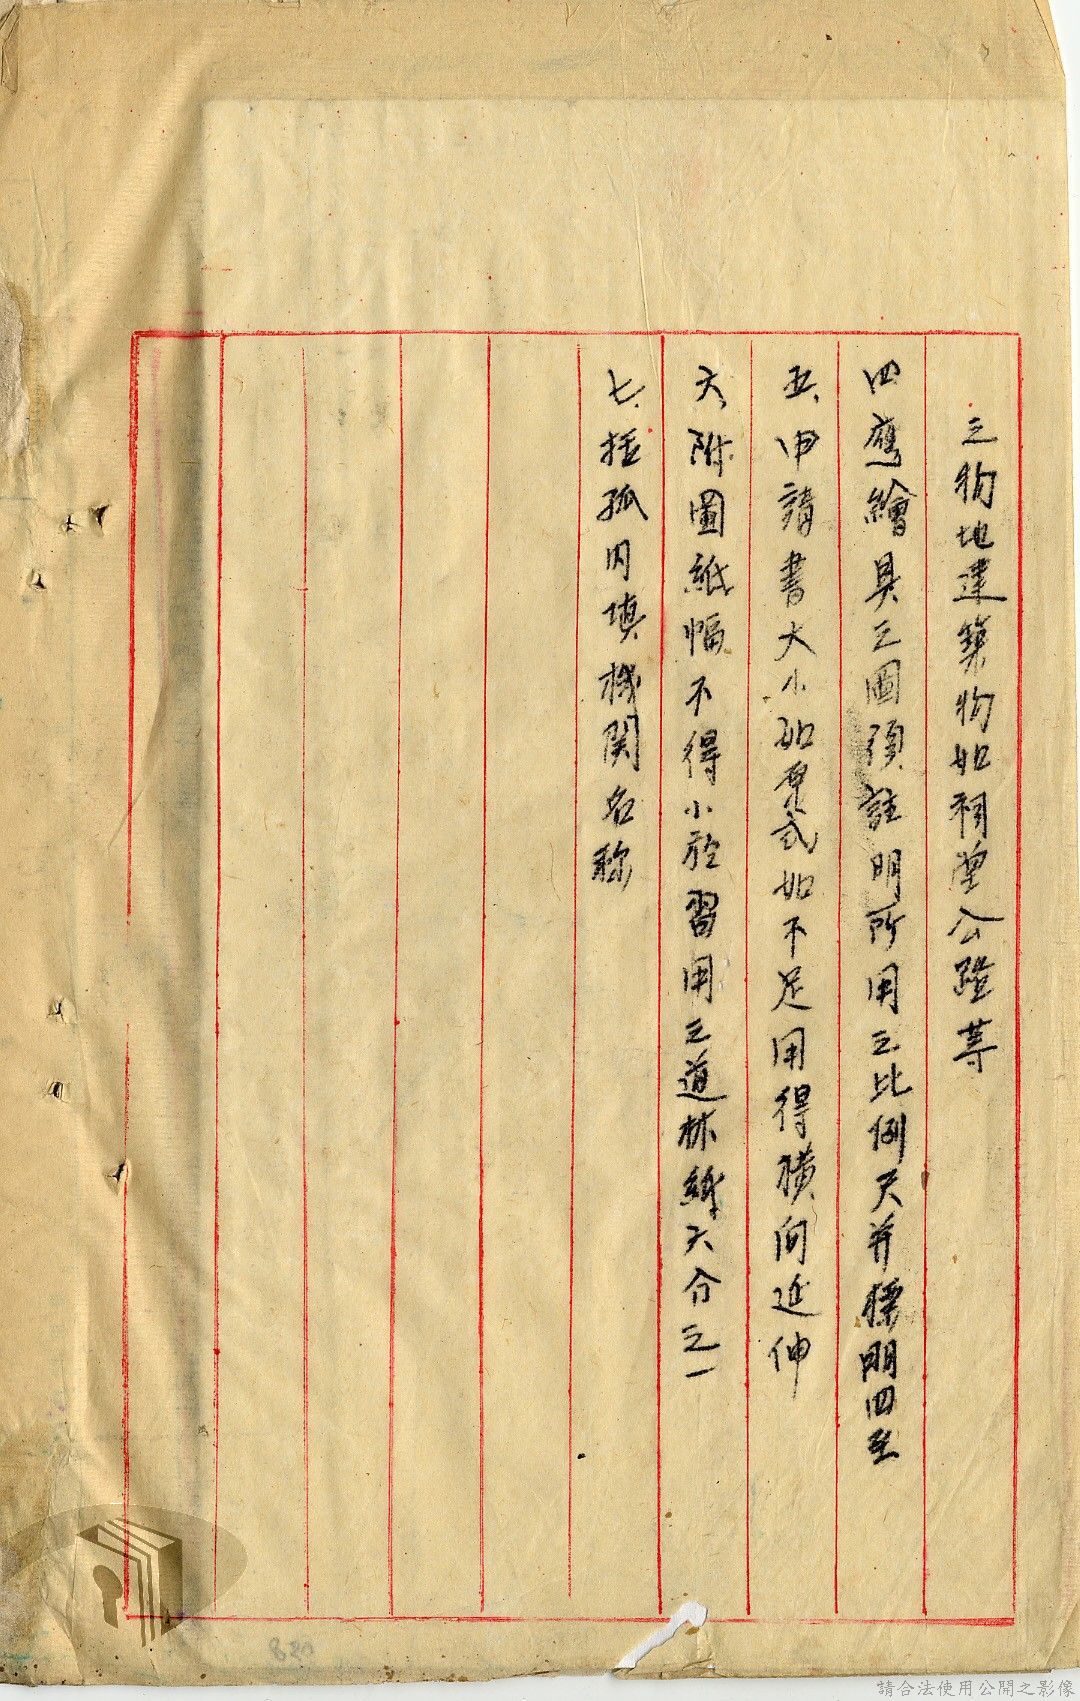 之物地建築物如祠堂公墜等
四應繪具之圖須註明所用之比例尺并標明四至
五、申請書大小如原式如不足用得橫向延伸
六、附圖紙幅不得小於習用之道林紙六分之一
七、括孤内填機関名称
820
請合法使用公開之影像